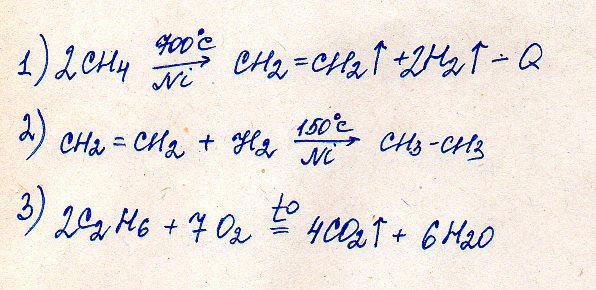 1) 2CH4 700°C → Ni CH2=CH2↑ + 2H2↑ - Q
2) CH2=CH2 + H2 150°C → Ni CH3-CH3
3) 2C2H6 + 7O2 t° = 4CO2↑ + 6H2O